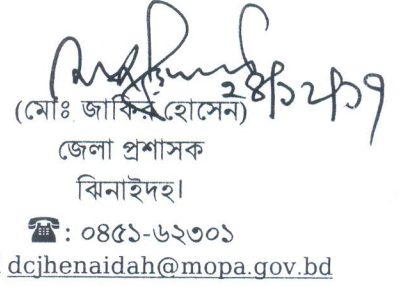 ২৪/১২/১৭
(মোঃ জাকির হোসেন)
জেলা প্রশাসক
ঝিনাইদহ।
☎: ০৪৫১-৬২৩০১
dcjhenaidah@mopa.gov.bd